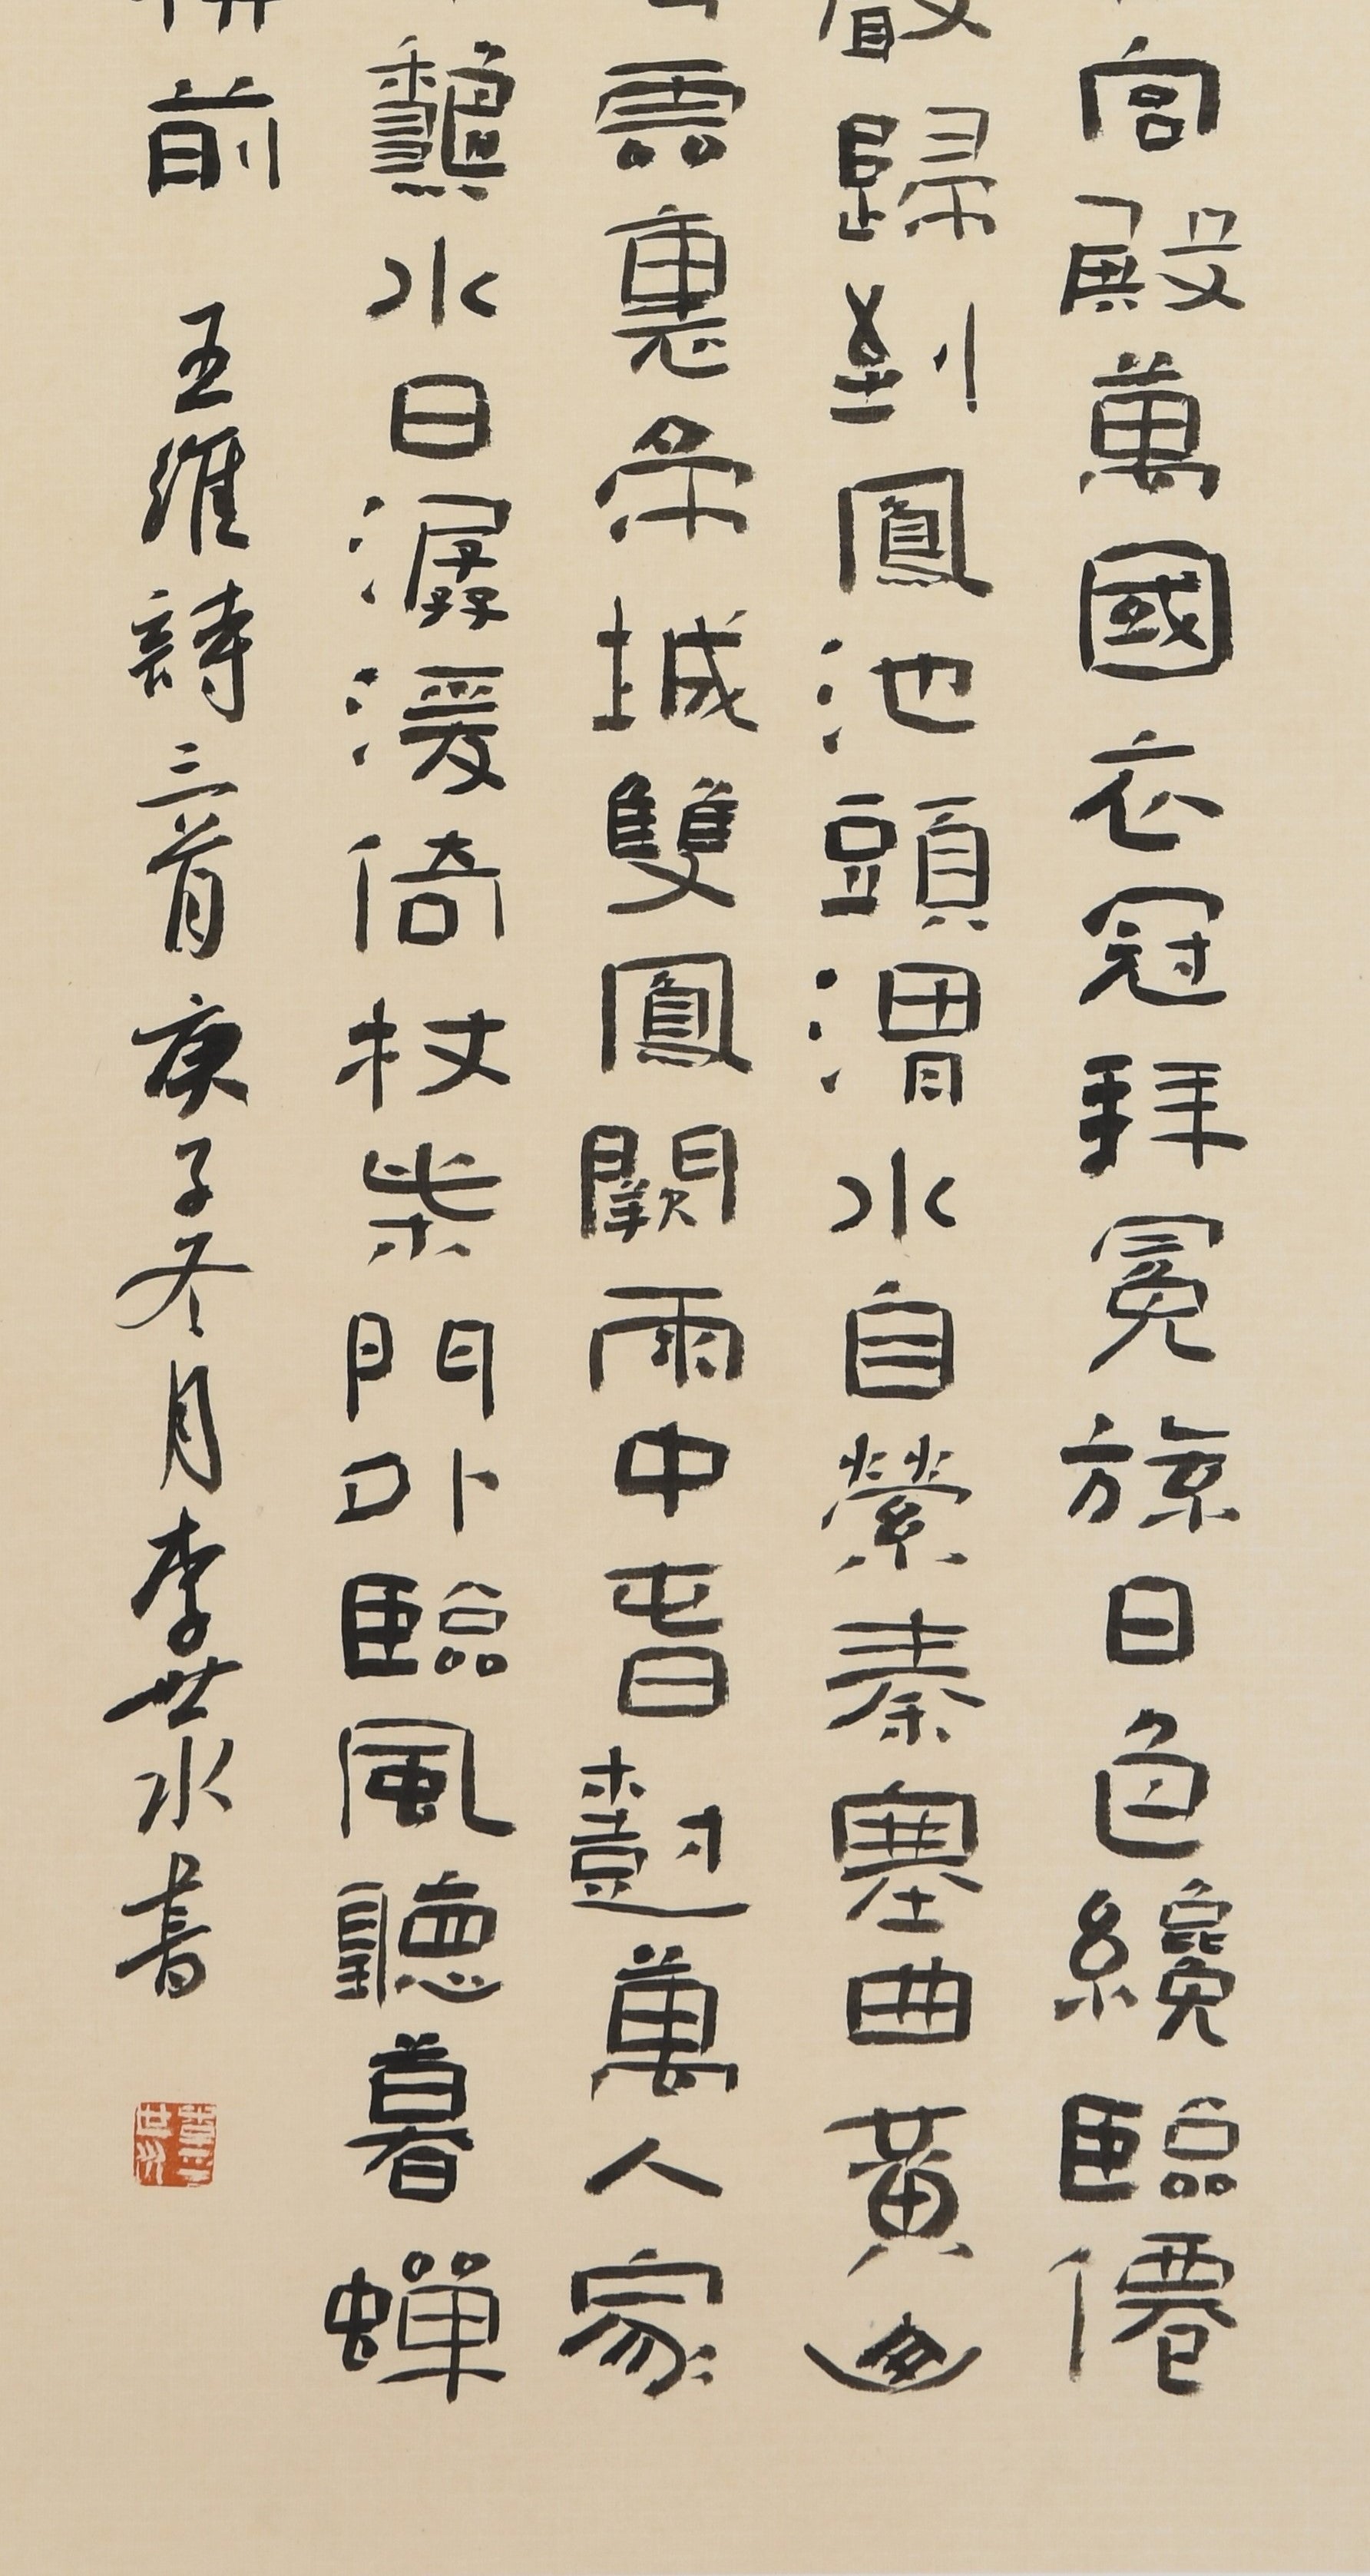 宮殿萬國衣冠拜冕旒日色纔臨僊
歸到鳳池頭渭水自縈秦塞曲黃
雲裏帝城雙鳳闕雨中春樹萬人家
水日潺湲倚杖柴門外臨風聽暮蟬
前 王維詩三首 庚子冬月李世水書